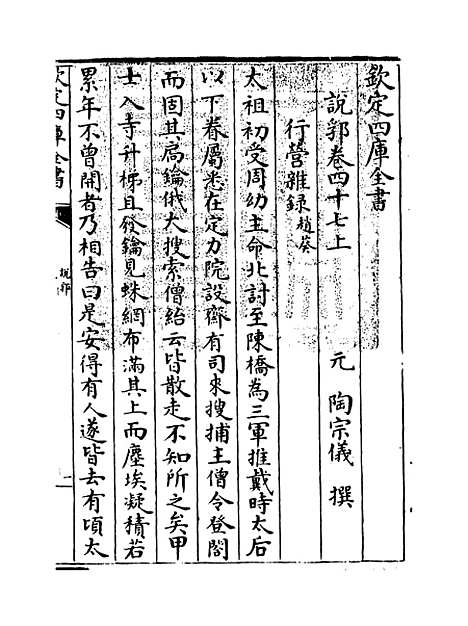 欽定四庫全書
說郛卷四十七上
元 陶宗儀 撰
行營雜録趙葵
太祖初受周幼主命北討至陳橋為三軍推戴時太后
以下眷屬悉在定力院設齋有司來搜捕主僧令登閣
而固其扃鑰俄大搜索僧紿云皆散走不知所之矣甲
士入寺升梯且發鑰見蛛網布滿其上而塵埃凝積若
累年不曾開者乃相告曰是安得有人遂皆去有頃太
欽定四庫全書
說郛
一